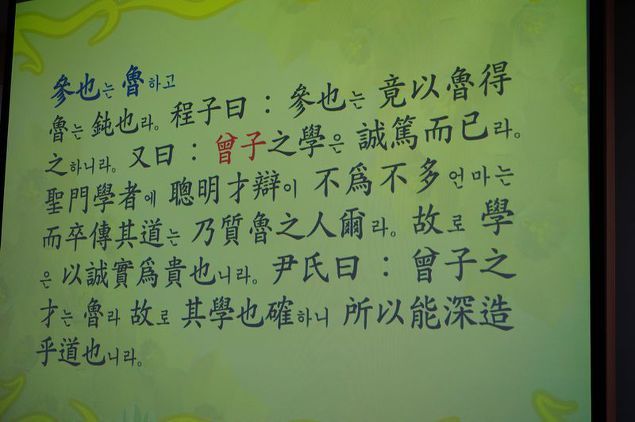 參也는 魯하고
魯는 鈍也라。程子曰：參也는 竟以魯得
之하니라。又曰：曾子之學은 誠篤而已라。
聖門學者에 聰明才辯이 不爲不多언마는
而卒傳其道는 乃質魯之人爾라。故로 學
은 以誠實爲貴也니라。尹氏曰：曾子之
才는 魯라 故로 其學也確하니 所以能深造
乎道也니라。